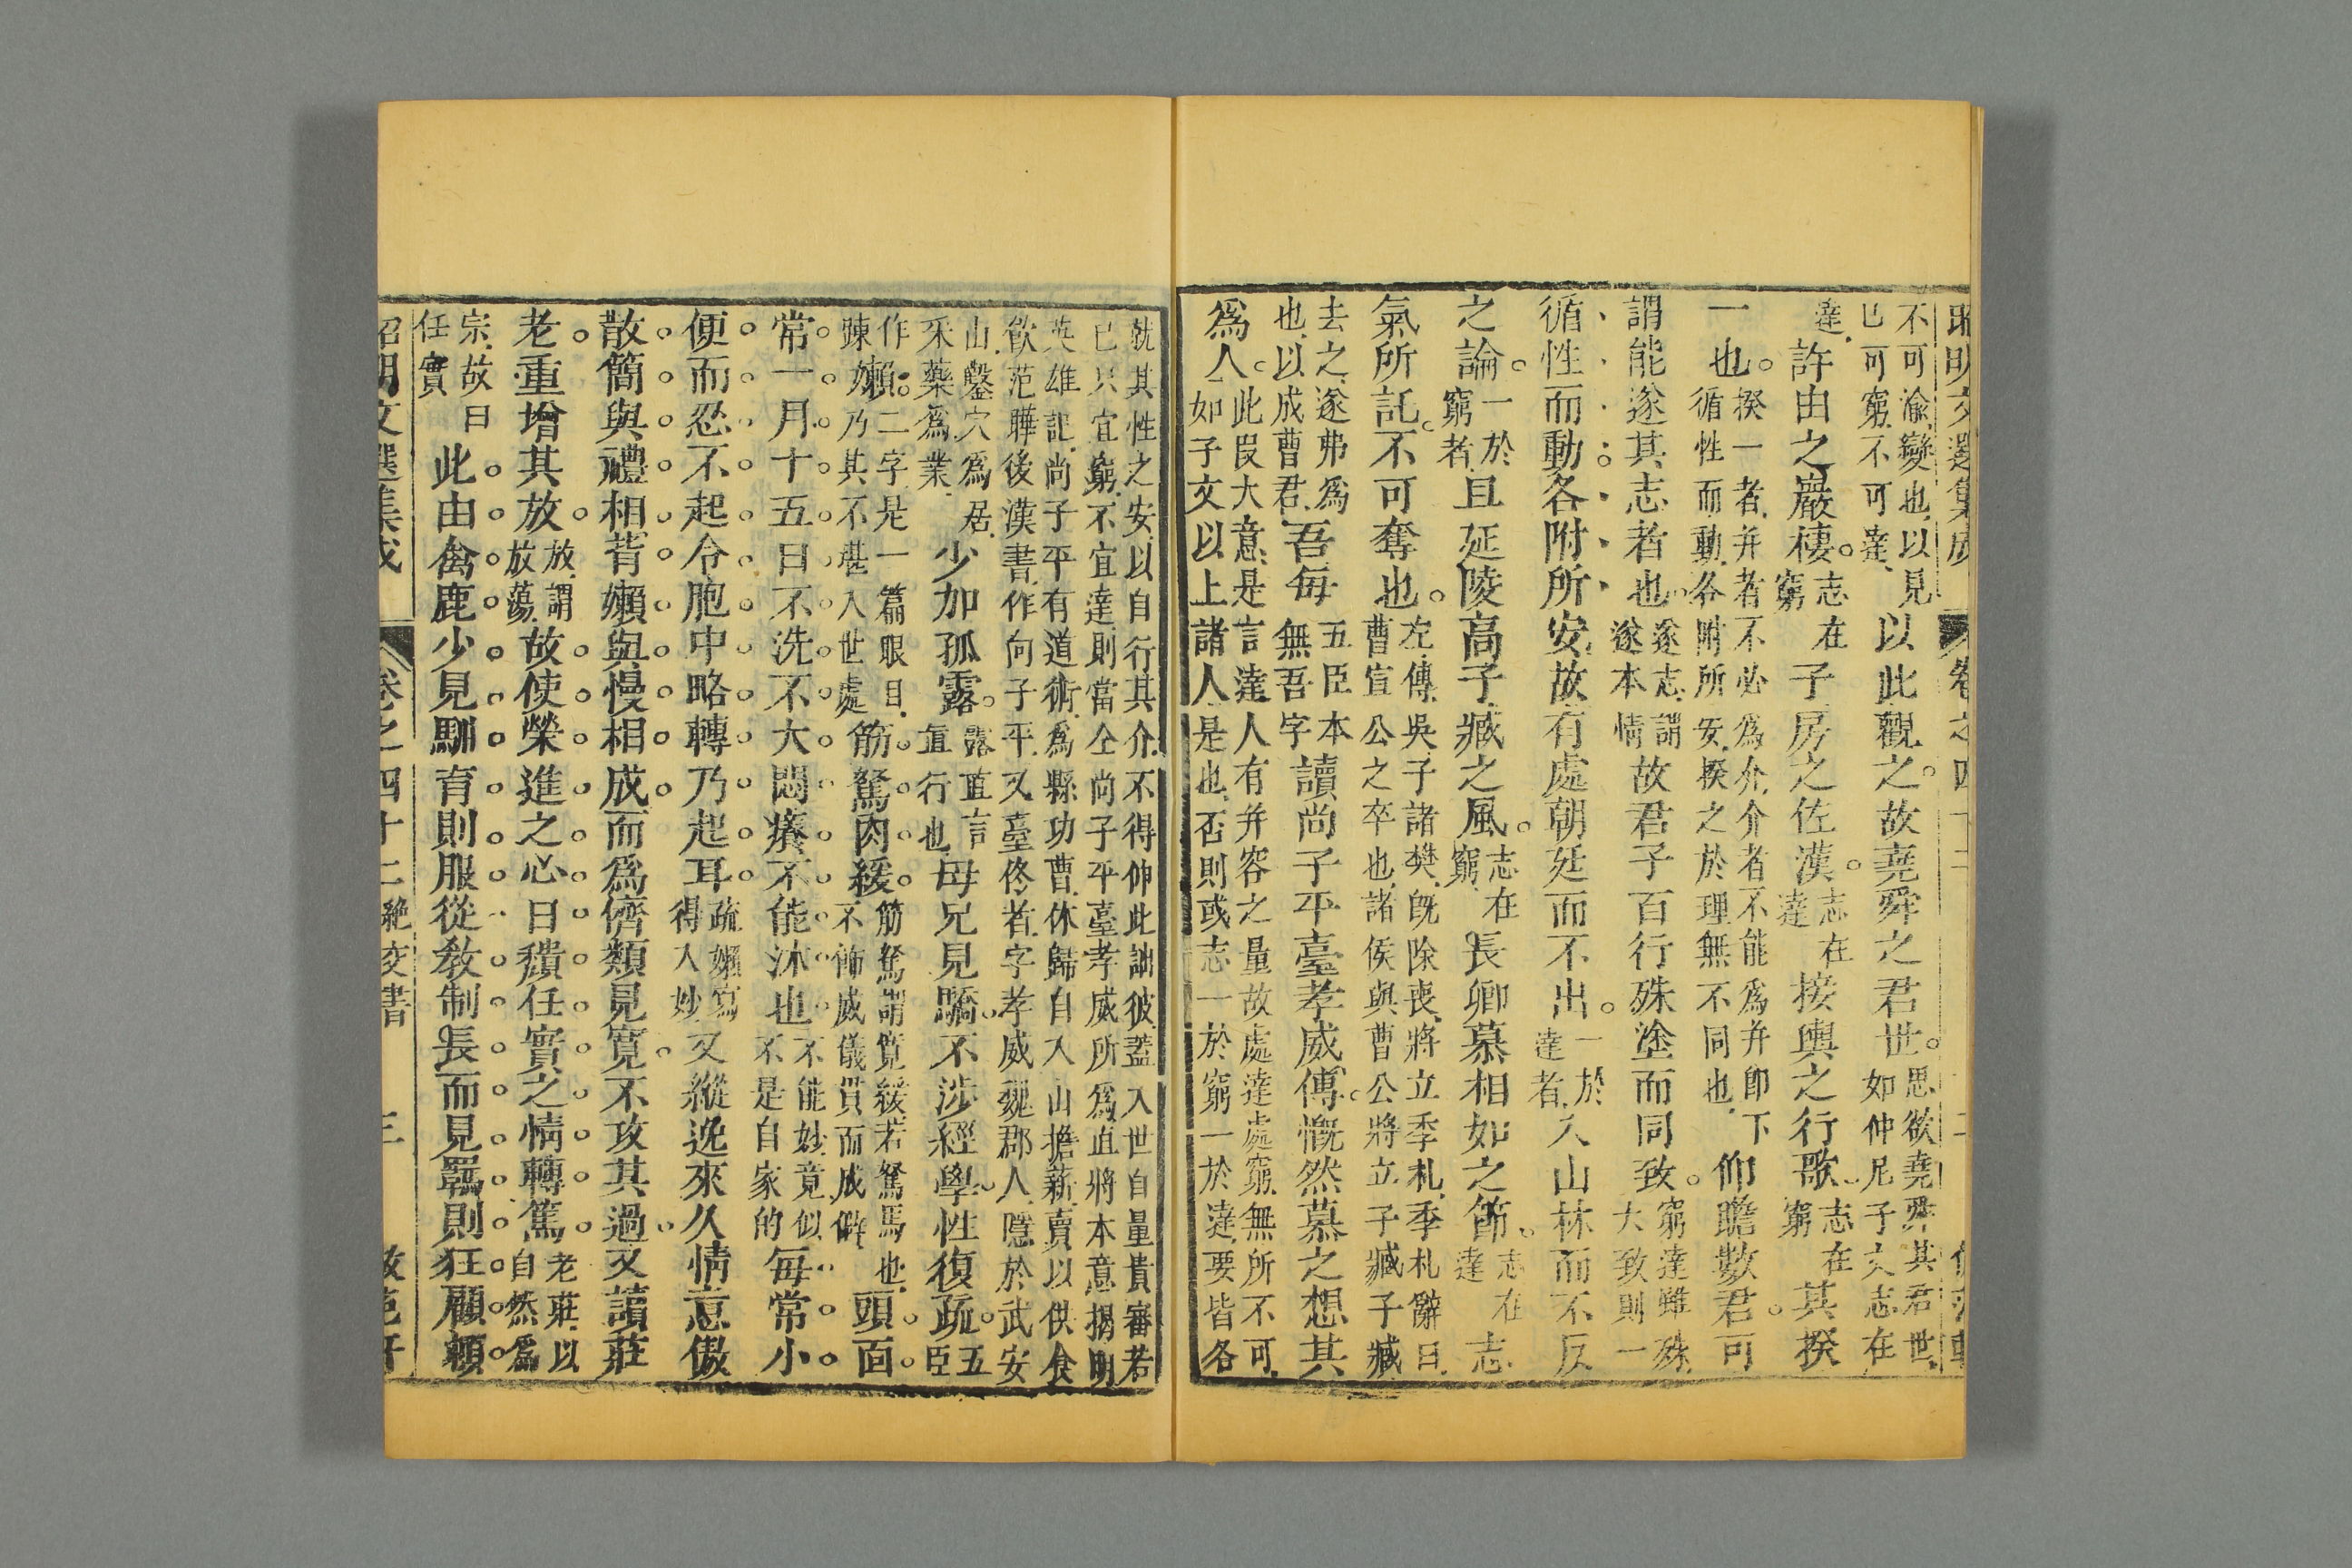 昭明文選集成 卷之四十二 二
不可渝變也以見
已可窮不可達 以此觀之故堯舜之君世思欲堯舜其君世
如仲尼子文志在
達 許由之巖棲志在窮子房之佐漢志在達接輿之行歌志在窮其揆
一也揆一者并者不必爲介介者不能爲并卽下
循性而動各附所安揆之於理無不同也仰瞻數君可
謂能遂其志者也遂志謂遂本情故君子百行殊塗而同致窮達雖殊大致則一
循性而動各附所安故有處朝廷而不出一於達者入山林而不反
之論一於窮者且延陵高子臧之風志在窮長卿慕相如之節志在達志
氣所託不可奪也左傳吳子諸樊旣除喪將立季札季札辭曰
曹宣公之卒也諸侯與曹公將立子臧子臧
去之遂弗爲也以成曹君吾每五臣本無吾字讀尚子平臺孝威傳慨然慕之想其
爲人此段大意是言達人有并容之量故處達處窮無所不可
如子文以上諸人是也否則或志一於窮一於達要皆各
就其性之安以自行其介不得伸此詘彼蓋入世自量貴審若
已只宜窮不宜達則當仝尚子平臺孝威所爲直將本意揭明
英雄記尚子平有道術爲縣功曹休歸自入山擔薪賣以供食
飮范曄後漢書作向子平又臺佟者字孝威魏郡人隱於武安
山鑿穴爲居采藥爲業少加孤露露直言直行也母兄見驕不涉經學性復疏五臣
作踈嬾二字是一篇眼目乃其不堪入世處筋駑肉緩筋駑謂寬緩若駑馬也不飾威儀貫而成僻頭面
常一月十五日不洗不大悶癢不能沐也不能妙竟似不是自家的每常小
便而忍不起令胞中略轉乃起耳疏嬾寫得入妙又縱逸來久情意傲
散簡與禮相背嬾與慢相成而爲儕類見寛不攻其過又讀莊
老重增其放放謂放蕩故使榮進之心日穨任實之情轉篤老莊以自然爲
宗故曰任實此由禽鹿少見馴育則服從教制長而見羈則狂顧頓
昭明文選集成 卷之四十二 絶交書 三